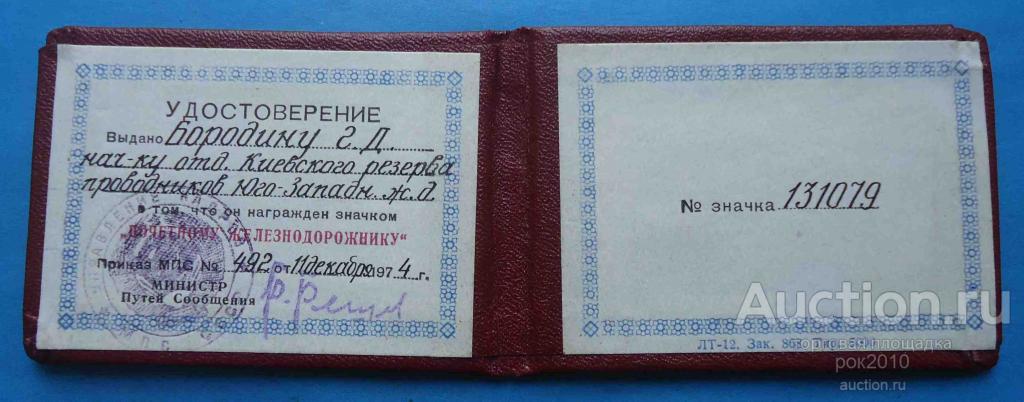 УДОСТОВЕРЕНИЕ
Выдано Бородину Г.Д.
нач-ку отд. Киевского резерва
проводников Юго-Западн. ж.д.
в том, что он награжден значком
„ПОЧЕТНОМУ ЖЕЛЕЗНОДОРОЖНИКУ“
Приказ МПС № 492 от 11 декабря 1974 г.
МИНИСТР
Путей Сообщения
№ значка 131079
ЛТ-12. Зак.
Auction.ru
торговая площадка
рок2010
auction.ru